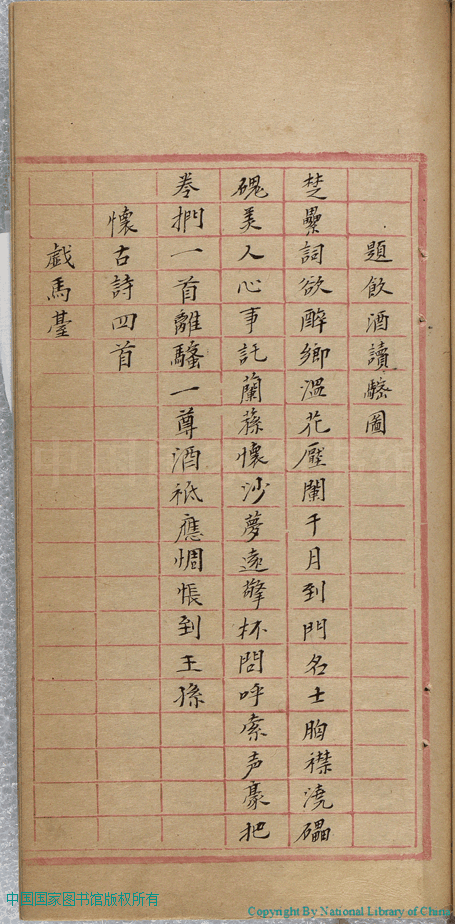 題飲酒讀騷圖
楚纍詞欲醉鄉溫花壓闌干月到門名士胸襟澆礧
磈美人心事託蘭蓀懷沙夢遠擎杯問呼索声豪把
卷捫一首離騷一尊酒袛應惆悵到王孫
懷古詩四首
戯馬臺
中国国家图书馆版权所有
Copyright By National Library of China